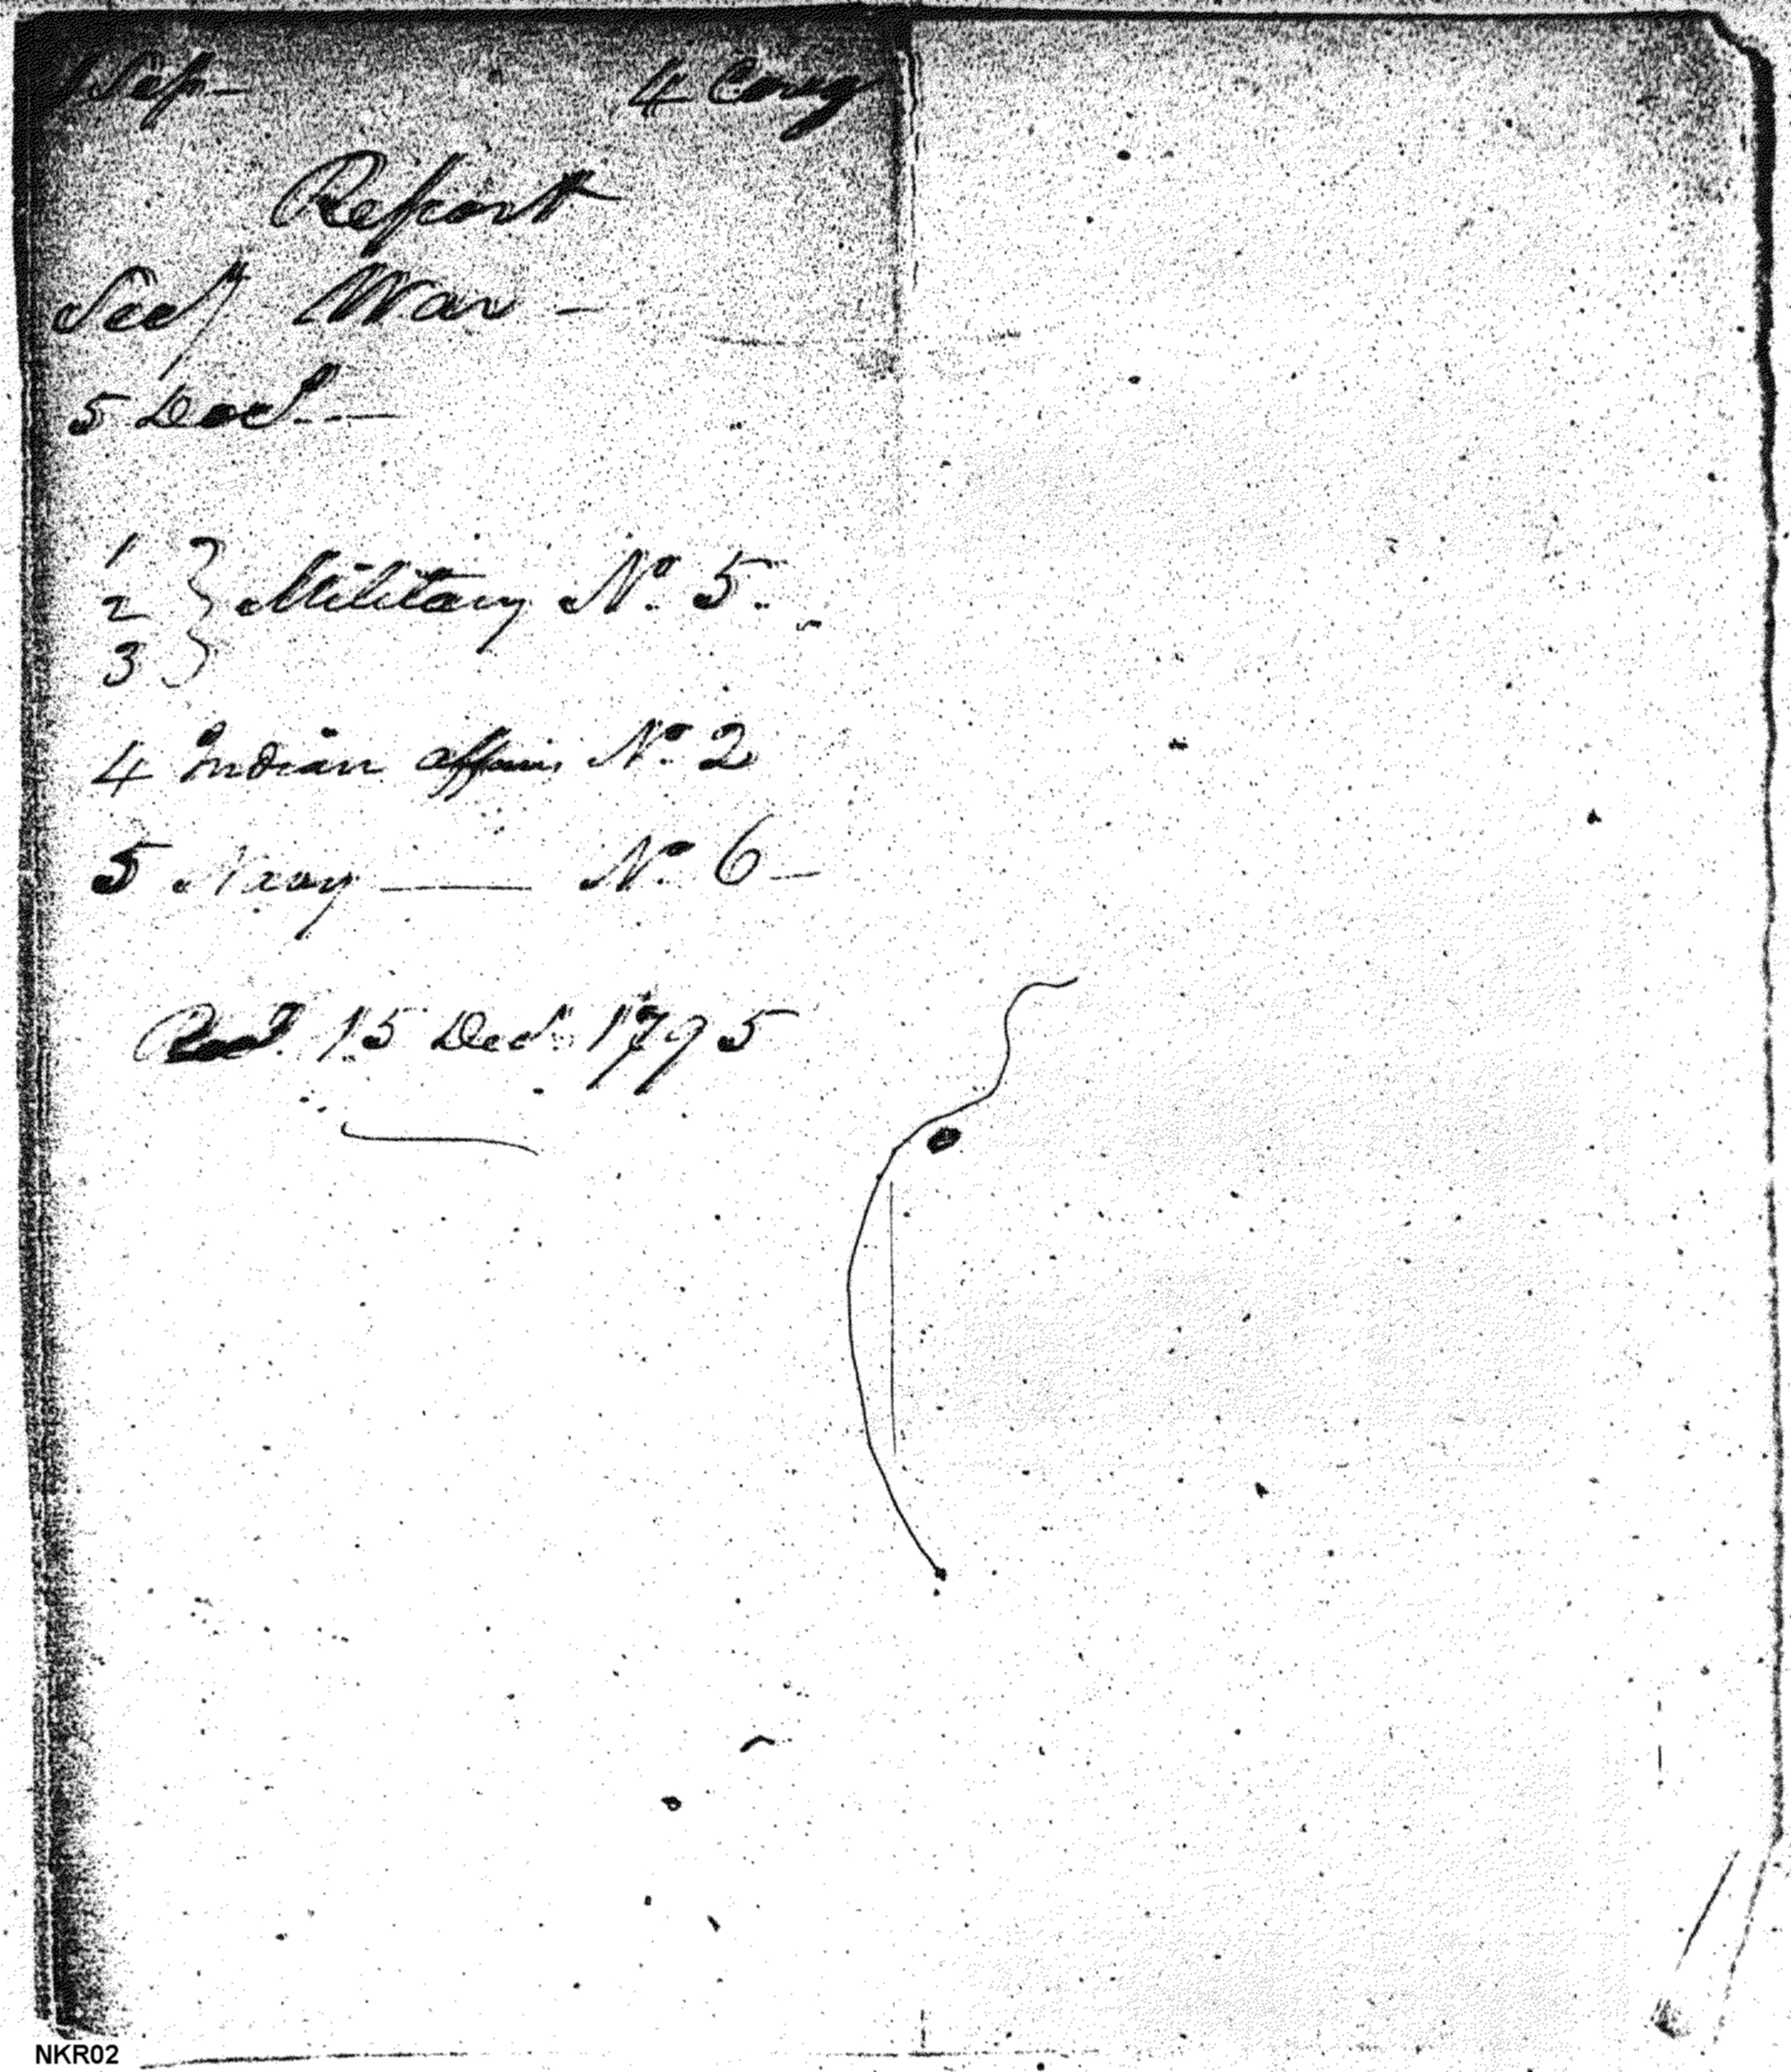 1 Ses — 4 Cong
Report
Secy War —
5 Doct. —
1
2 } Military No. 5.
3
4 Indian affairs No. 2
5 Navy — No. 6 —
Recd. 15 Decr. 1795
NKR02